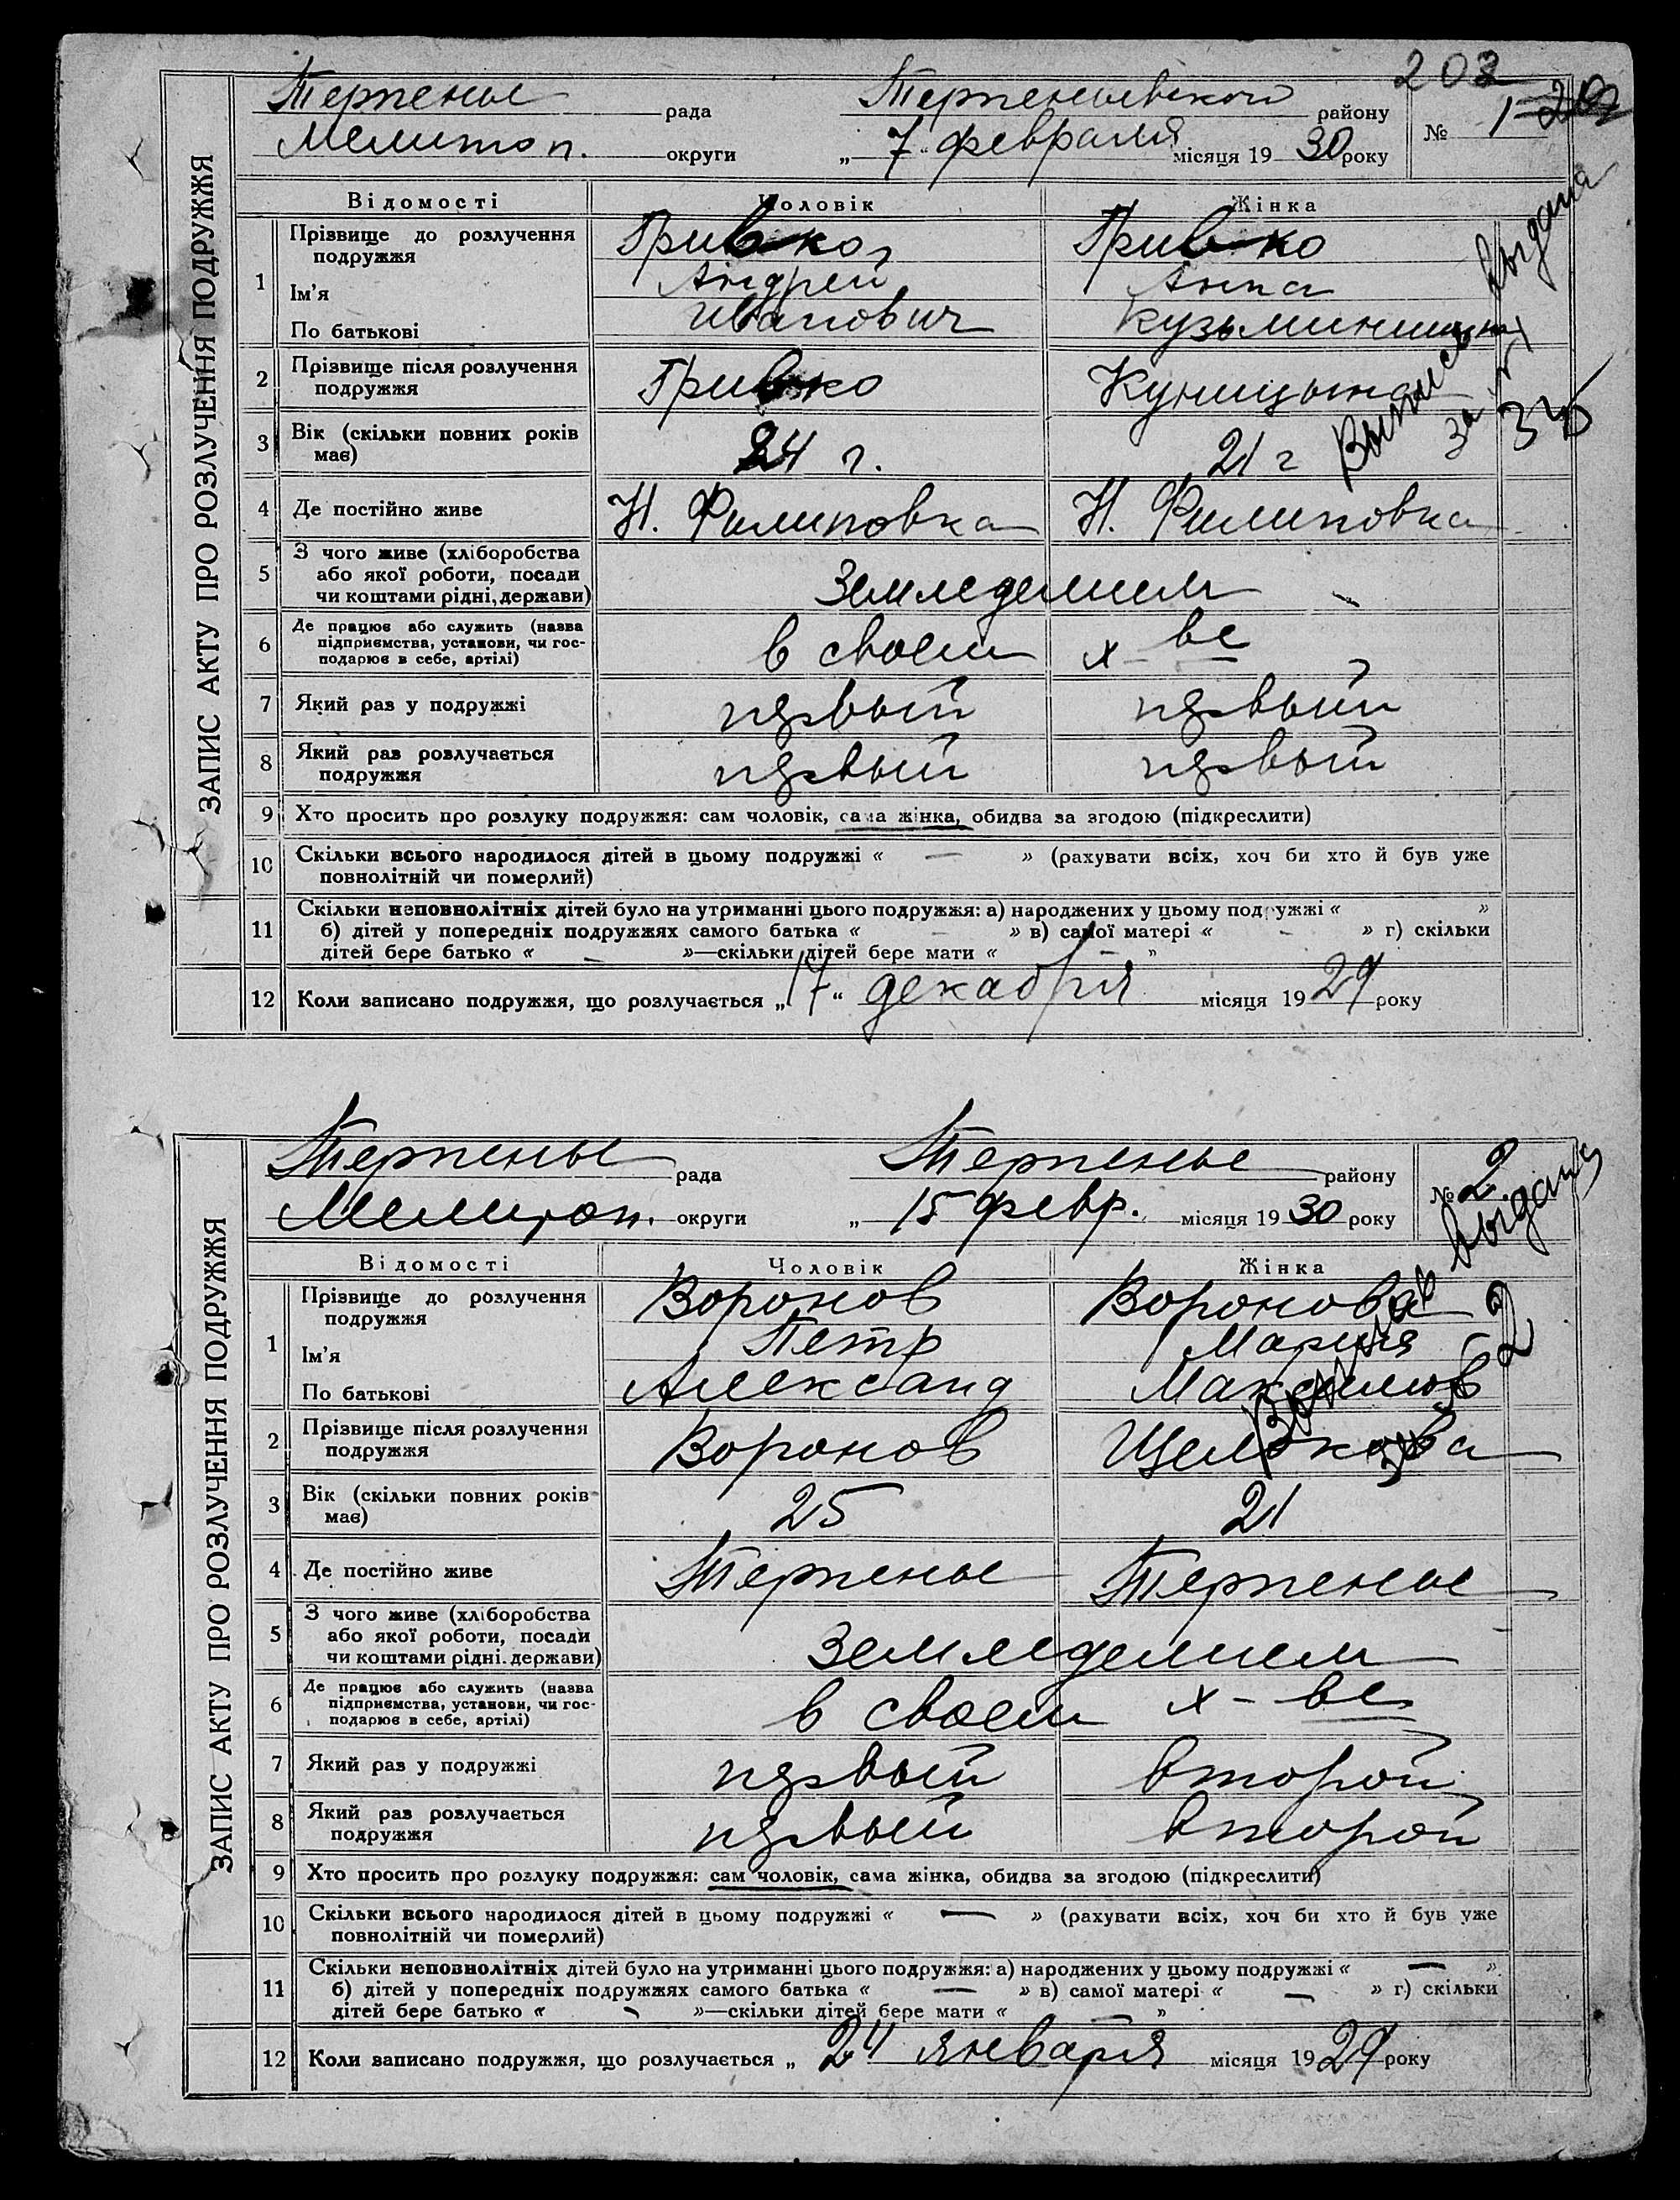 203
Терпенье рада Терпеньевского району
№ 1 202
Мелитоп. округи „ 7 “ февраля місяця 19 30 року
ЗАПИС АКТУ ПРО РОЗЛУЧЕННЯ ПОДРУЖЖЯ
Відомості Чоловік Жінка
1 Прізвище до розлучення подружжя Гривко Гривко
Ім'я Андрей Анна
По батькові Иванович Кузьминична
2 Прізвище після розлучення подружжя Гривко Куницына
3 Вік (скільки повних років має) 24 г. 21 г
Выпись выдана
за №
4 Де постійно живе Н. Филиповка Н. Филиповка
5 З чого живе (хліборобства або якої роботи, посади чи коштами рідні, держави) Земледелием
6 Де працює або служить (назва підприємства, установи, чи господарює в себе, артілі) в своем х-ве
7 Який раз у подружжі первый первый
8 Який раз розлучається подружжя первый первый
9 Хто просить про розлуку подружжя: сам чоловік, сама жінка, обидва за згодою (підкреслити)
10 Скільки всього народилося дітей в цьому подружжі « — » (рахувати всіх, хоч би хто й був уже
повнолітній чи померлий)
11 Скільки неповнолітніх дітей було на утриманні цього подружжя: а) народжених у цьому подружжі « »
б) дітей у попередніх подружжях самого батька « - » в) самої матері « - » г) скільки
дітей бере батько « - »—скільки дітей бере мати « »
12 Коли записано подружжя, що розлучається „ 17 “ декабря місяця 19 29 року
Терпенье рада Терпенье району
№ 2
Мелитоп. округи „ 15 февр. місяця 19 30 року
ЗАПИС АКТУ ПРО РОЗЛУЧЕННЯ ПОДРУЖЖЯ
Відомості Чоловік Жінка
1 Прізвище до розлучення подружжя Воронов Воронова
Ім'я Петр Мария
По батькові Александ Максимов
2 Прізвище після розлучення подружжя Воронов Щелокова
Выпись выдана
за № 2
3 Вік (скільки повних років має) 25 21
4 Де постійно живе Терпенье Терпенье
5 З чого живе (хліборобства або якої роботи, посади чи коштами рідні. держави) Земледелием
6 Де працює або служить (назва підприємства, установи, чи господарює в себе, артілі) в своем х-ве
7 Який раз у подружжі первый второй
8 Який раз розлучається подружжя первый второй
9 Хто просить про розлуку подружжя: сам чоловік, сама жінка, обидва за згодою (підкреслити)
10 Скільки всього народилося дітей в цьому подружжі « — » (рахувати всіх, хоч би хто й був уже
повнолітній чи померлий)
11 Скільки неповнолітніх дітей було на утриманні цього подружжя: а) народжених у цьому подружжі « — »
б) дітей у попередніх подружжях самого батька « — » в) самої матері « — » г) скільки
дітей бере батько « - »—скільки дітей бере мати « — »
12 Коли записано подружжя, що розлучається „ 24 января місяця 19 29 року